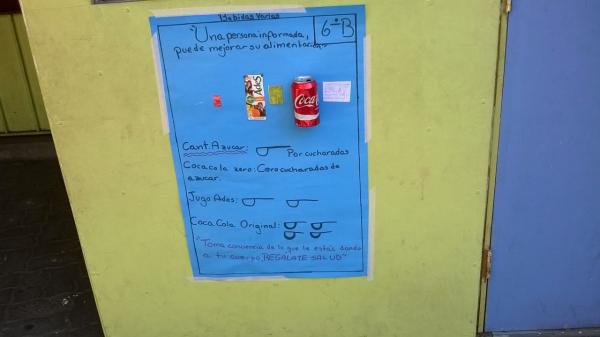 Bebidas Varias
6º B
"Una persona informada,
puede mejorar su alimentación"
AdeS
Coca-Cola
Cant. Azucar: Por cucharadas
Coca cola zero: Cero cucharadas de
azucar.
Jugo Ades:
Coca Cola Original:
"Toma conciencia de lo que le estás dando
a tu cuerpo, REGALATE SALUD"